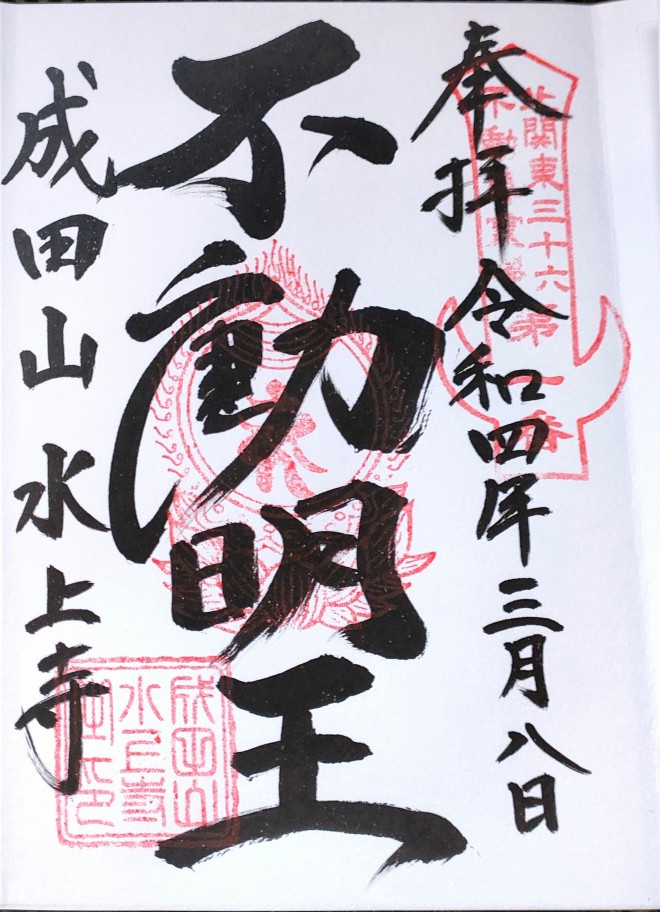 奉拝 令和四年三月八日
北関東三十六
不動
第一番
不動明王
成田山 水上寺
成田山
水上寺